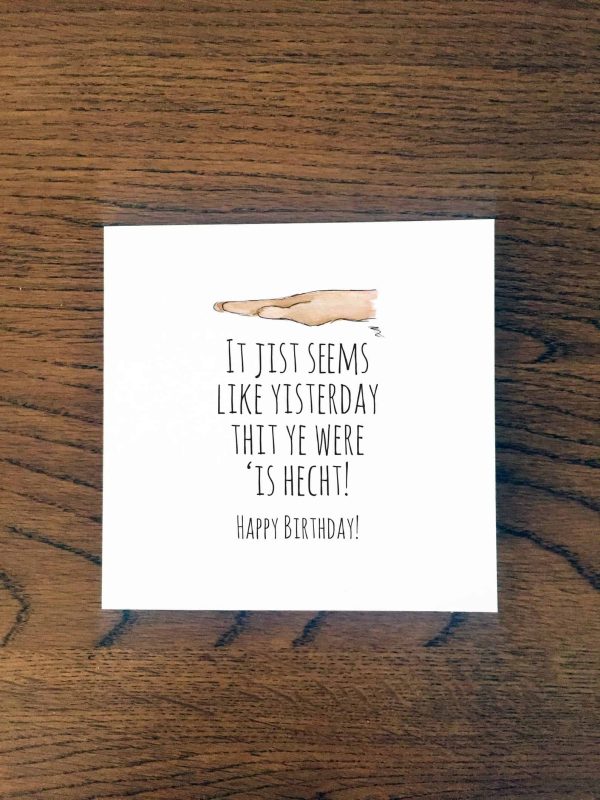 It jist seems
like yisterday
thit ye were
‘is hecht!
Happy Birthday!